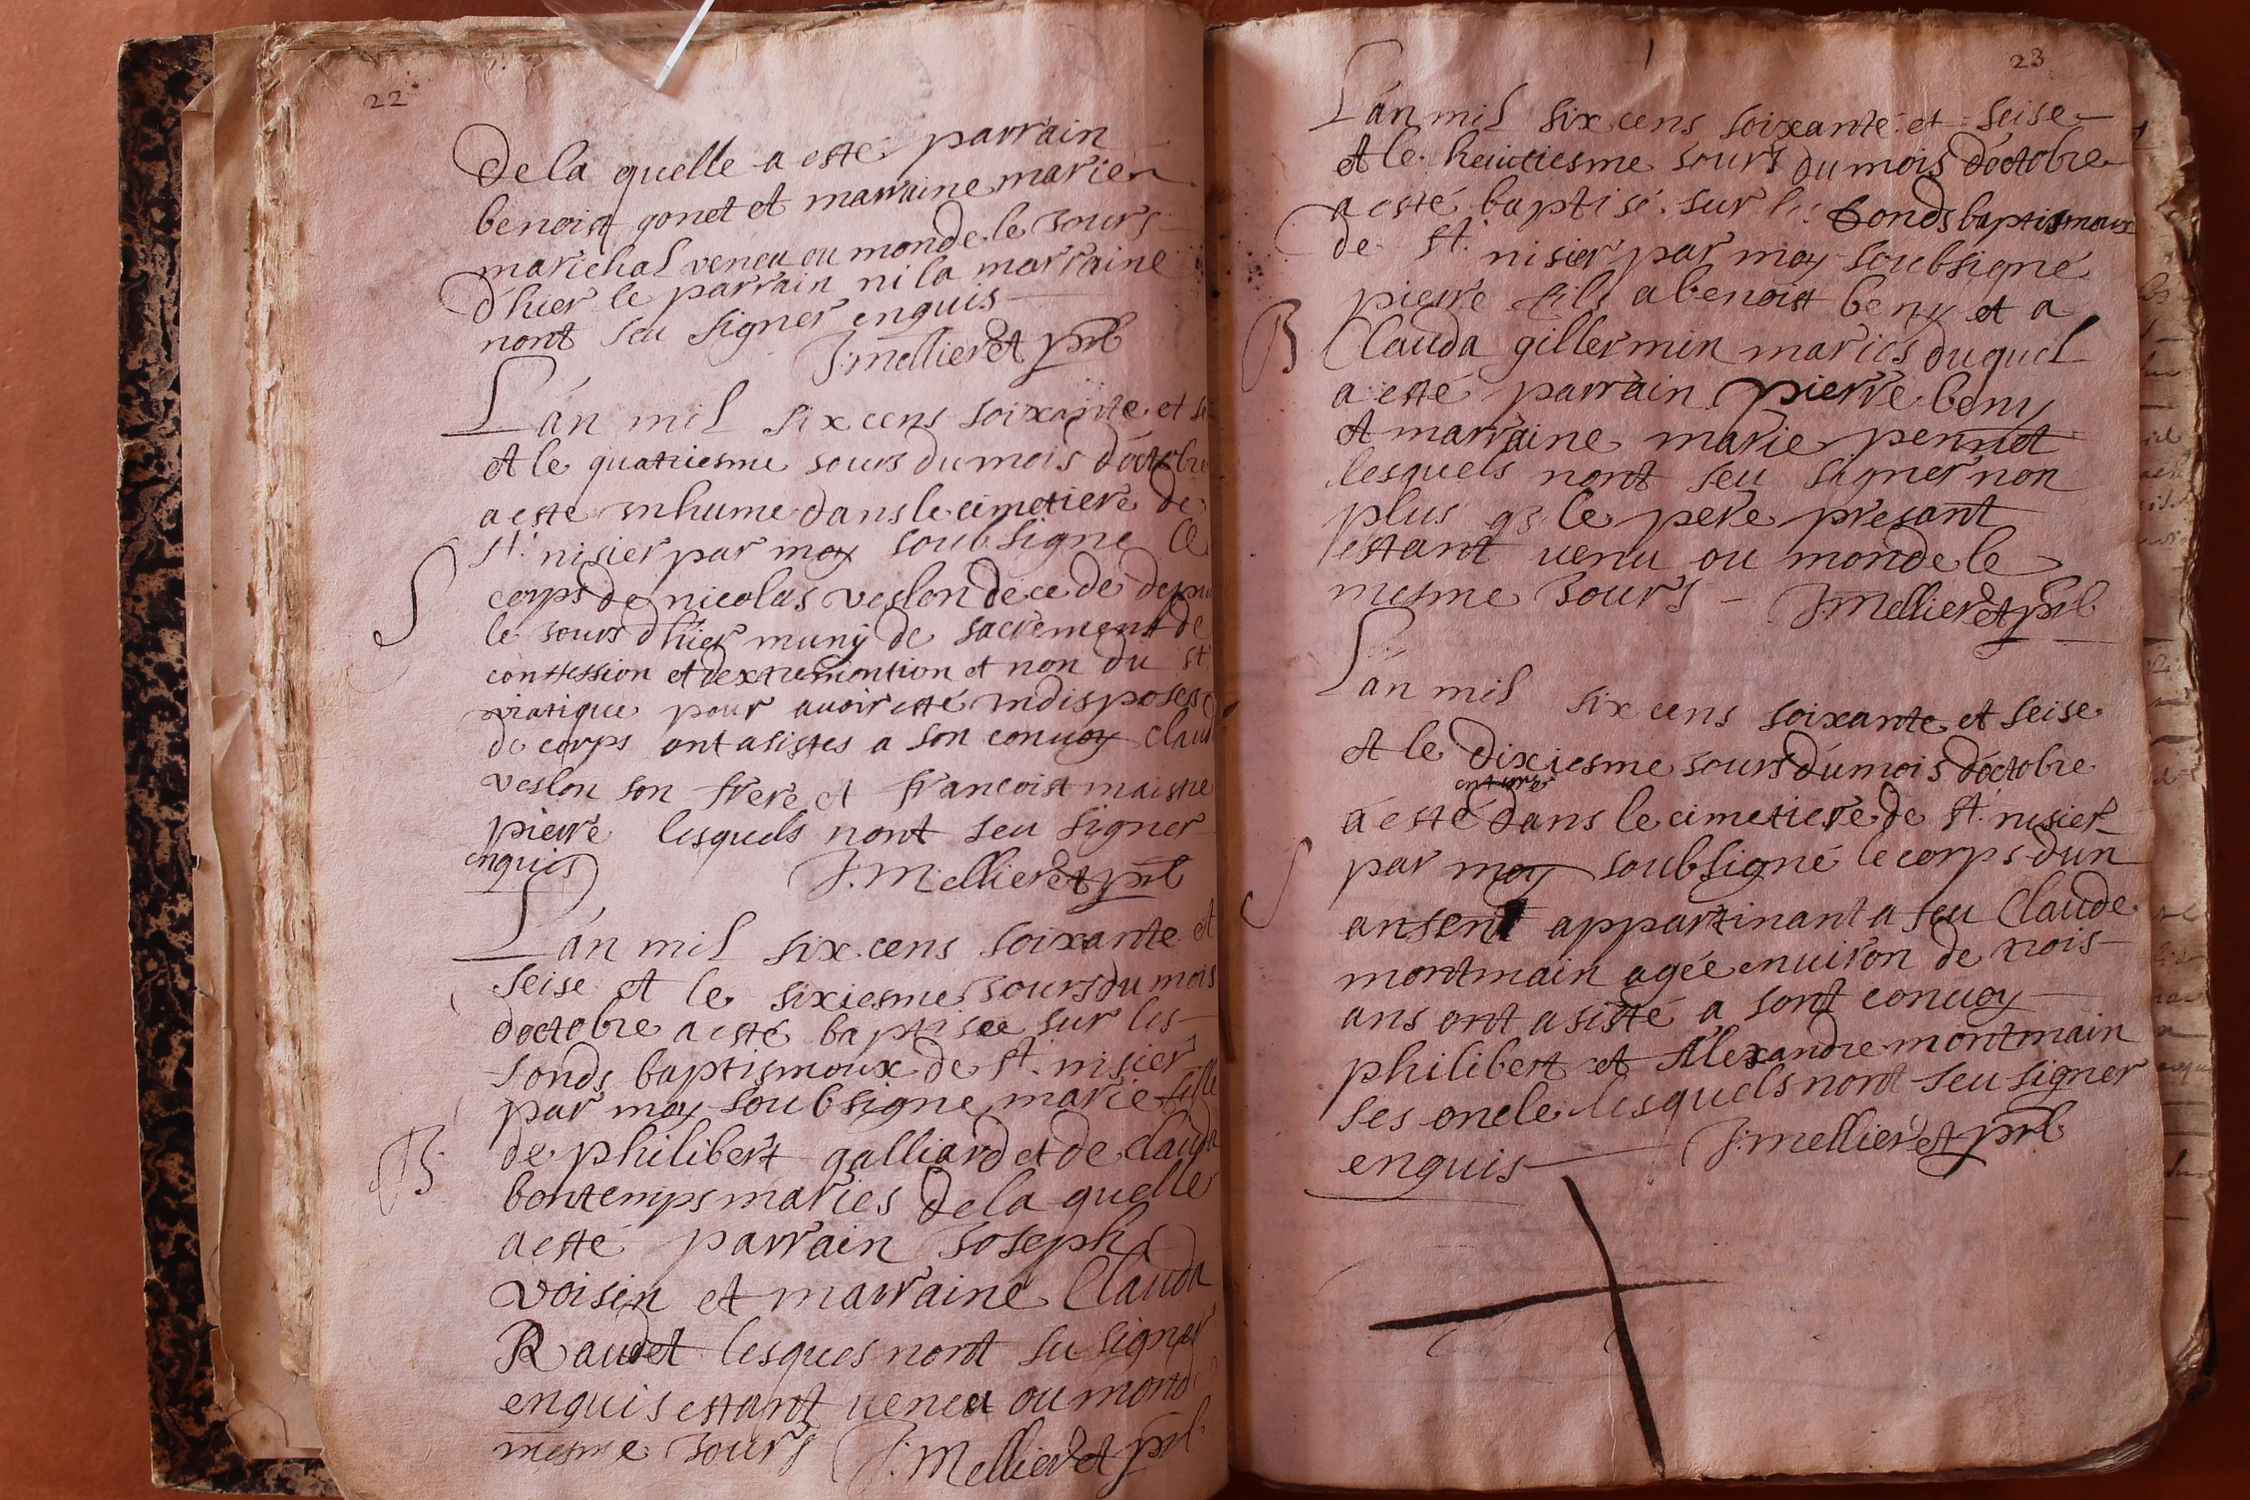 22
De la quelle a esté parrain
benoist gonet et marraine marie
marichal veneu ou monde le Jours
d'hier le parrain ni la marraine
nont seu signer enquis
J: mellieret prb
L'an mil six cens soixante et
et le quatriesme Jours du mois d'octobre
a este Inhume dans le cimetiere de
st. nisier par moy soubsigne le
corps de nicolas veslon decede depui
le Jours d'hier muny de sacrement de
confession et dextremontion et non du st
viatique pour auoir esté Indisposes
de corps ont asistes a son conuoy Claud
veslon son frere et francoist maistre
pierre lesquels nont seu signer
enquis J. Mellieret prb
L'an mil six cens soixante et
seise et le sixiesme Jours du mois
doctobre a esté baptisee sur les
fonds baptismoux de st. nisier
par moy soubsigne marie fille
de philibert galliard et de Clauda
bontemps maries de la quelle
a esté parrain Joseph
Voisin et marraine Clauda
Raudet lesques nont su signer
enquis estant veneu ou mond
mesme Jours J. Mellieret prb.
B
S
B
23
L'an mil six cens soixante et seise
et le heuitiesme Jours du mois d'octobre
a esté baptisé sur les fonds baptismoux
de st. nisier par moy soubsigné
pierre fils a benoist beny et a
Clauda gillermin maries duquel
a esté parrain pierre beny
et marraine marie pennet
lesquels nont seu signer non
plus qe le pere presant
estant venu ou monde le
mesme Jours J: Mellieret prb
L'an mil six cens soixante et seise
et le dixiesme Jours du mois d'octobre
enterré
a esté dans le cimetiere de st. nisier
par moy soubsigné le corps dun
anfent appartinant a feu Claude
montmain agée enuiron de trois
ans ont asisté a sont conuoy
philibert et Alexandre montmain
ses oncle lesquels nont seu signer
enquis J: mellieret prb
B
S